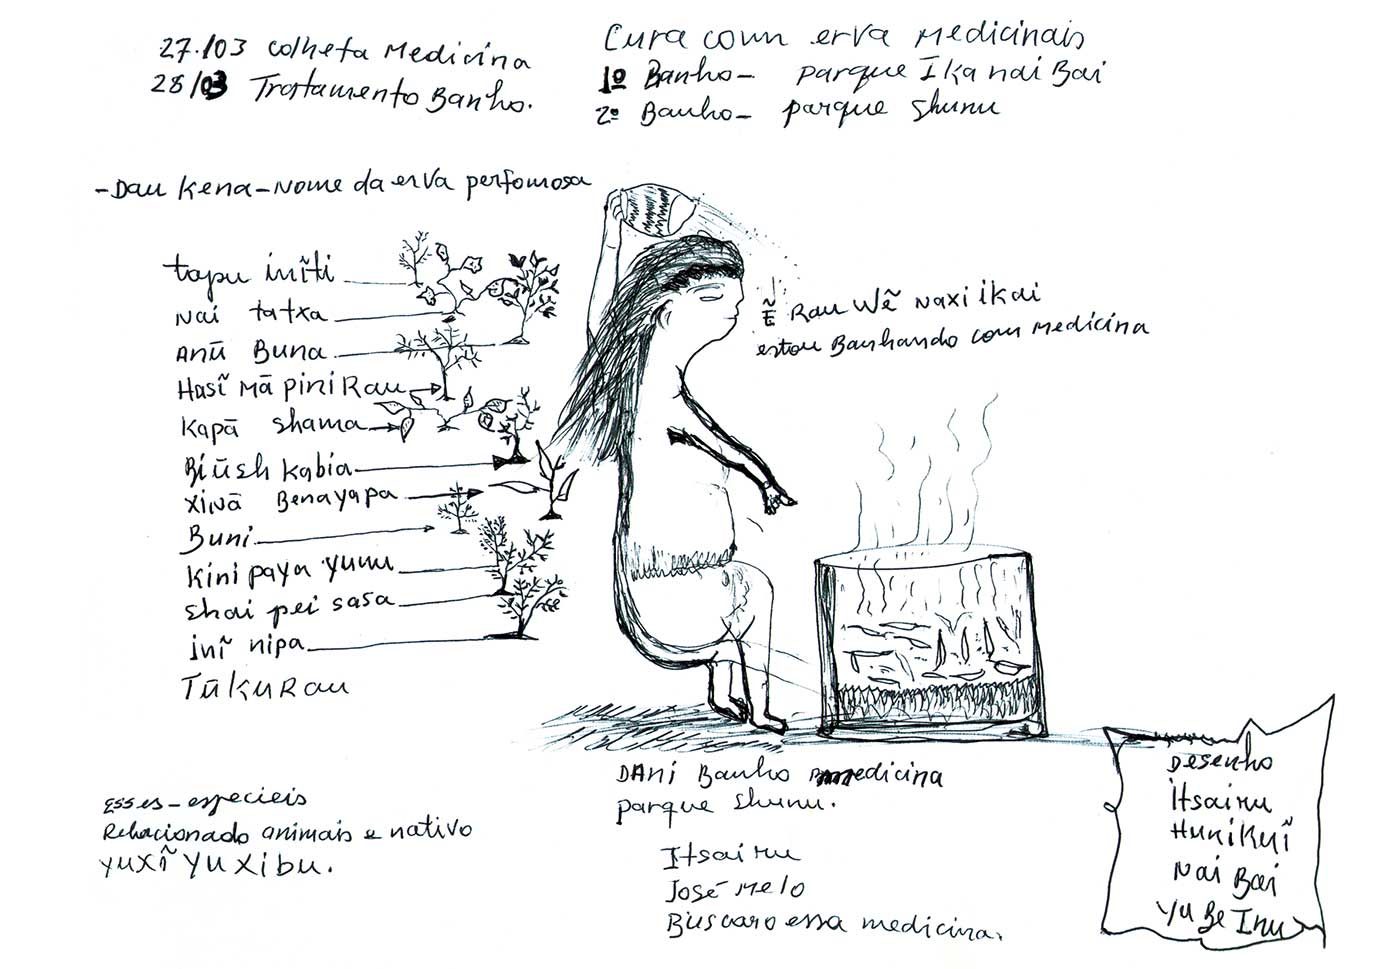 27/03 Colheta Medicina
28/03 Tratamento Banho.
Cura com erva Medicinais
1º Banho- parque Ika nai Bai
2º Banho- parque Shunu
-Dau Kena-Nome da erva perfomosa
tapu inĩti
Nai tatxa
ANŪ Buna
Hasĩ Mā piri Rau
Kapā shama
Biūsh kabia
Xinā Benayapa
Buni
Kini paya yunu
Shai pei sasa
inĩ nipa
TŪKU Rau
Ẽ Rau Wẽ Naxi ikai
estou Banhando com Medicina
DANi Banho medicina
parque Shunu.
Itsairu
José Melo
Buscaro essa medicina.
esses-especieis
Relacionado animais e nativo
yuxĩ yuxibu.
Desenho
itsairu
Hunikuĩ
Nai Bai
Yu Be Inu